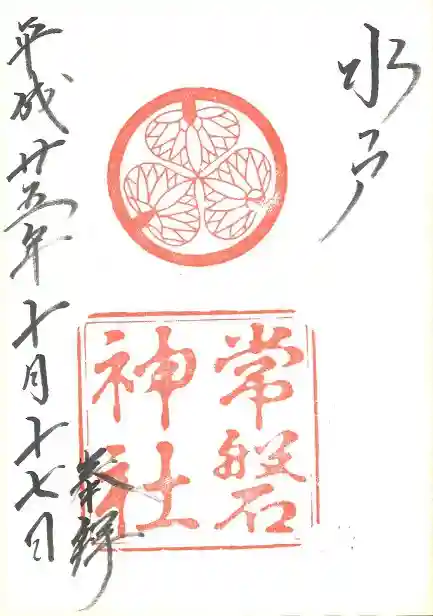 水戸
常磐
神社
奉拝
平成廿五年十月十七日